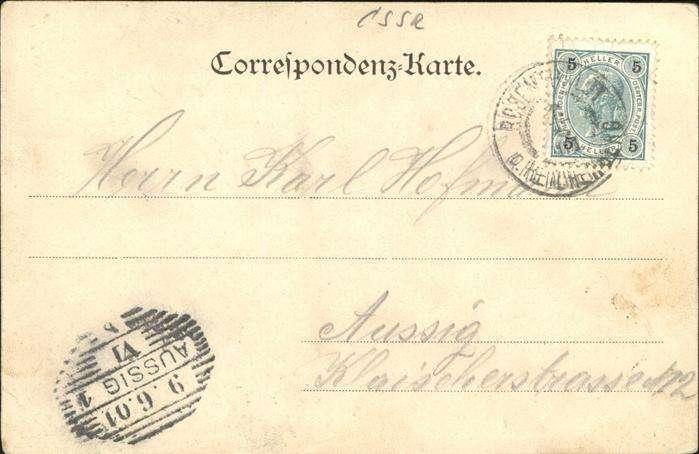 cssr
Correspondenz-Karte.
5 HELLER 5
5 HELLER 5
Herrn Karl Hofmann
Aussig
Klaischerstrasse No 2
VI
AUSSIG 1
9.6.01